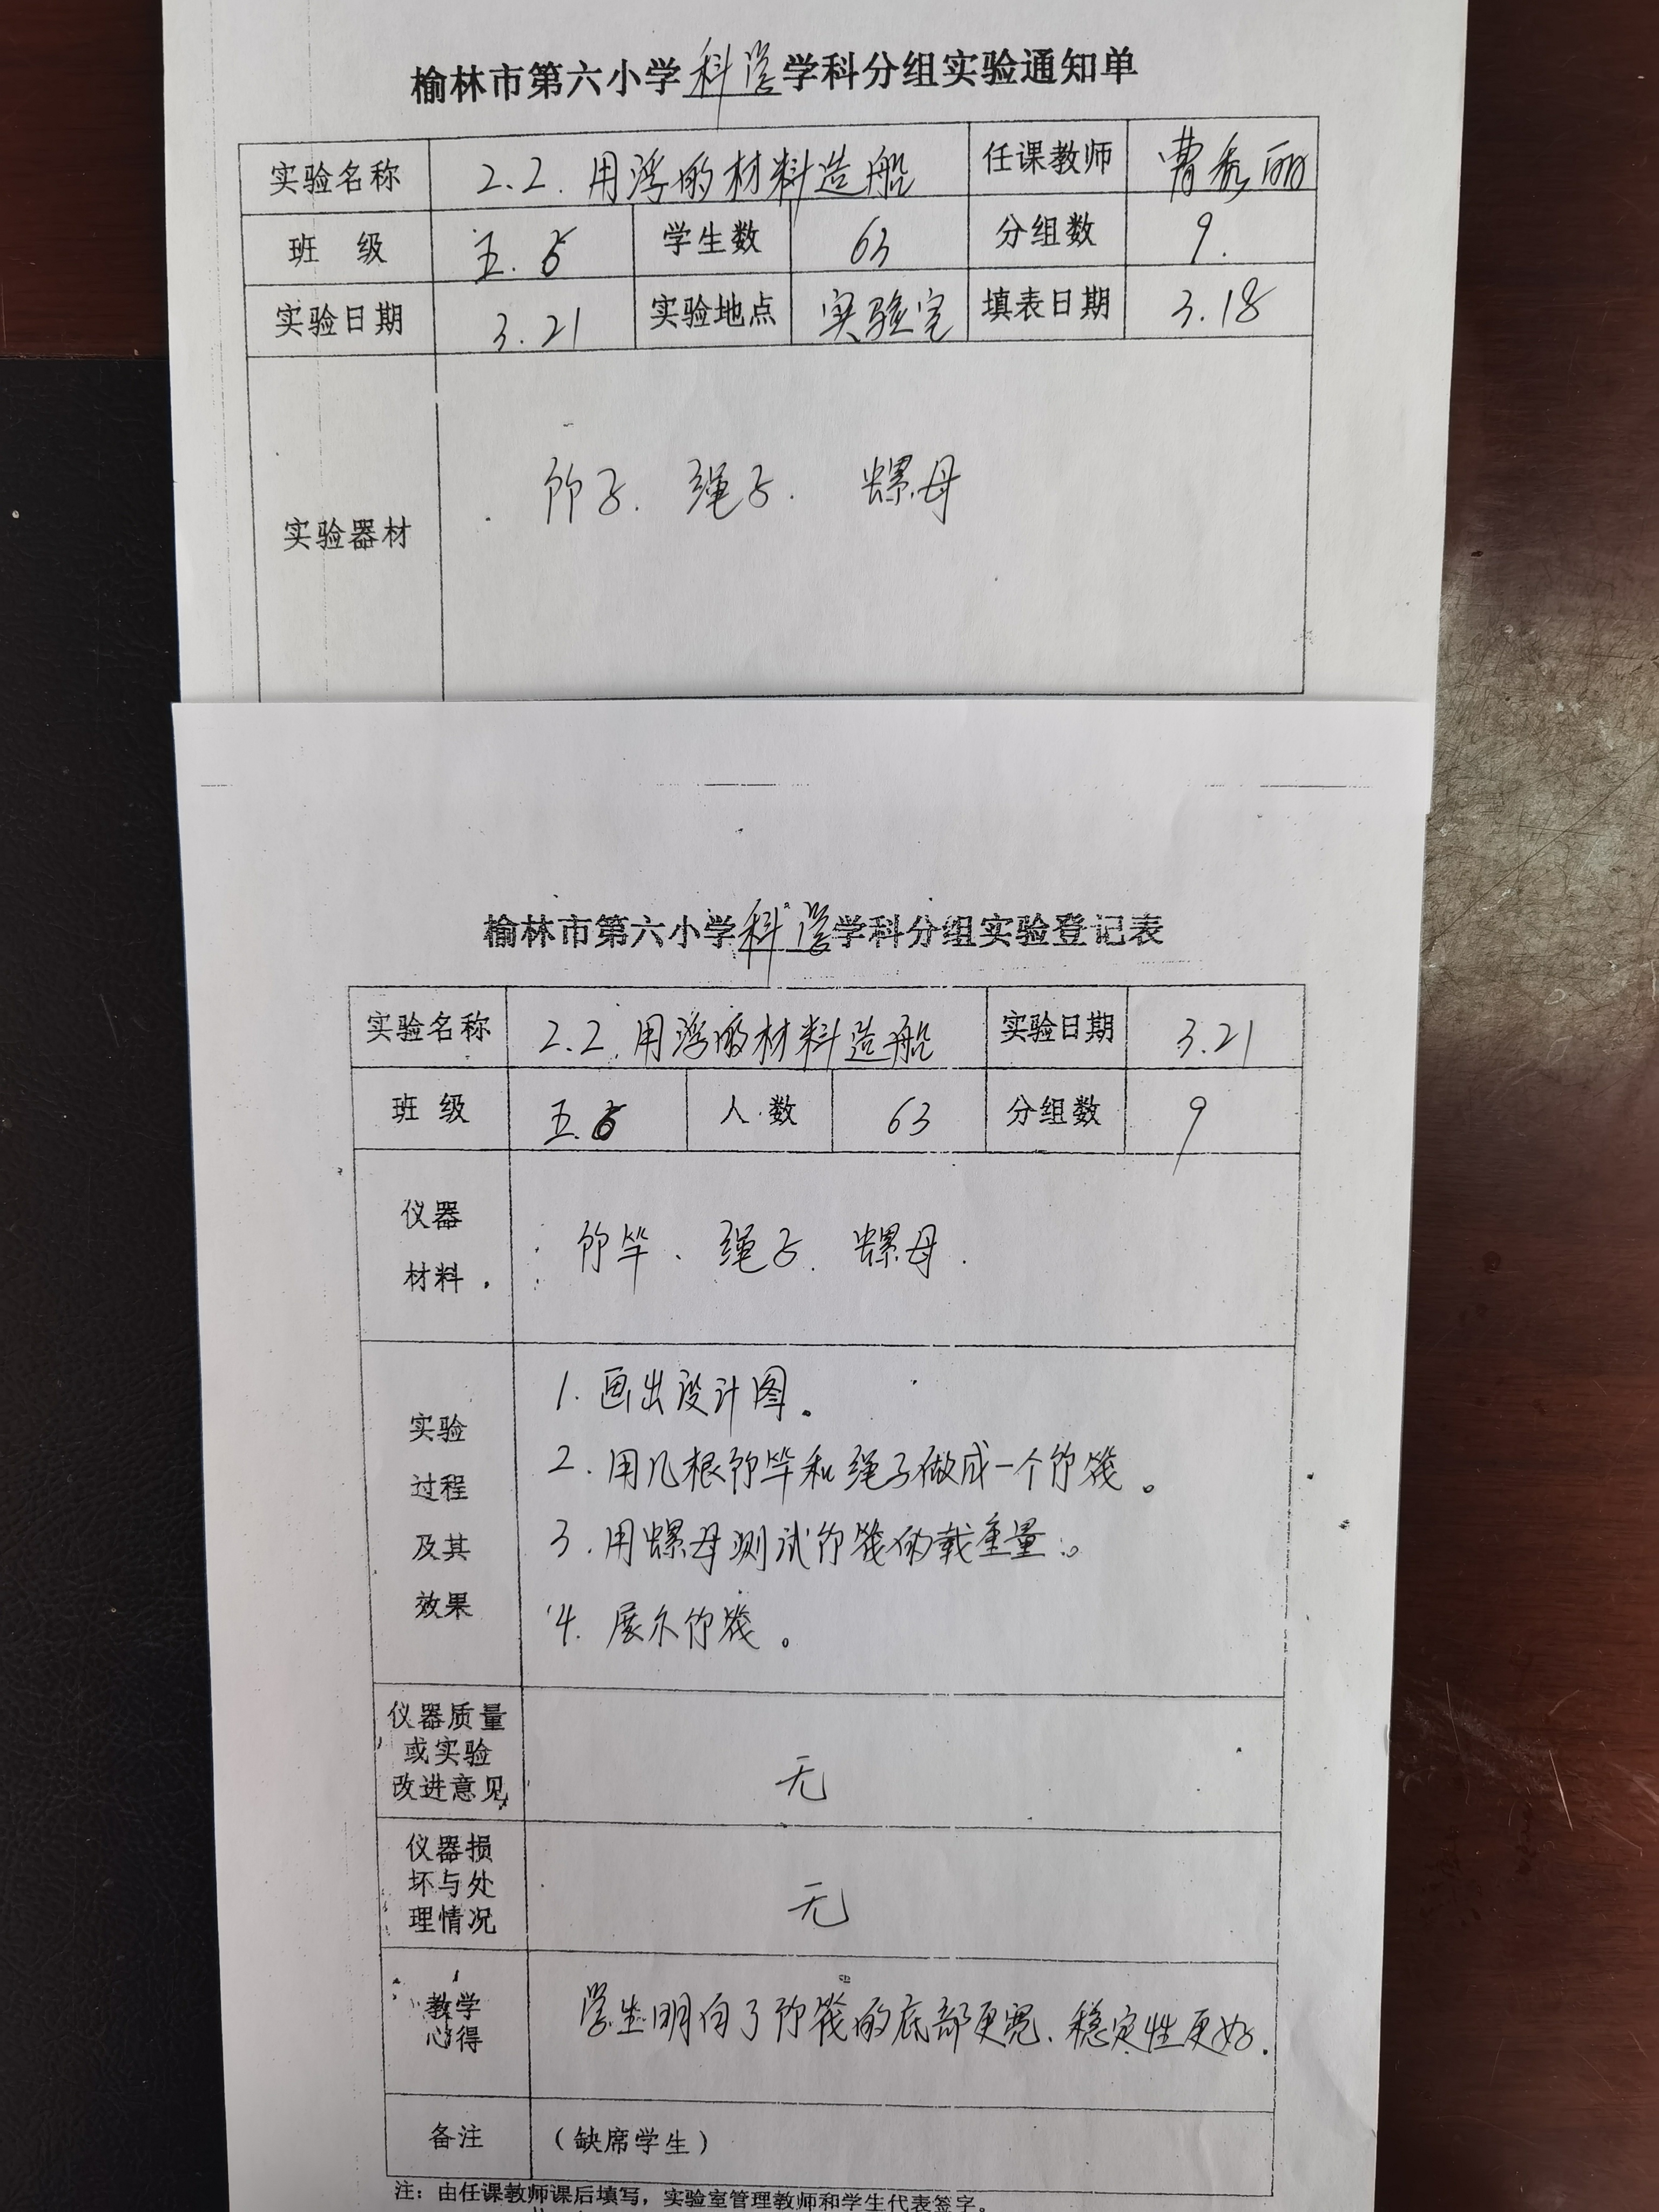 榆林市第六小学科学学科分组实验通知单
实验名称 2.2.用浮的材料造船 任课教师 曹秀丽
班 级 学生数 63 分组数 9.
实验日期 3.21 实验地点 实验室 填表日期 3.18
实验器材 竹子. 绳子. 螺母
榆林市第六小学科学学科分组实验登记表
实验名称 2.2.用浮的材料造船 实验日期 3.21
班 级 人 数 63 分组数 9
仪器
材料
竹竿、绳子. 螺母.
实验
过程
及其
效果
1.画出设计图。
2.用几根竹竿和绳子做成一个竹筏。
3.用螺母测试竹筏的载重量。
4.展示竹筏。
仪器质量
或实验
改进意见
无
仪器损
坏与处
理情况
无
教学
心得
学生明白了竹筏的底部更宽、稳定性更好.
备注 （缺席学生）
注：由任课教师课后填写，实验室管理教师和学生代表签字。